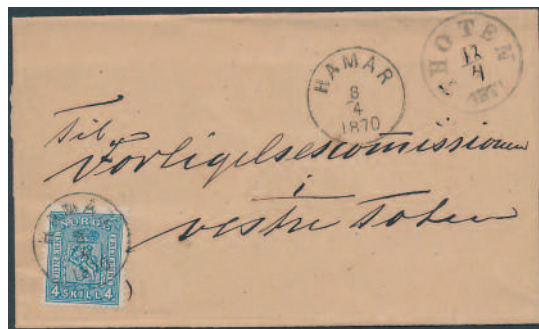 HAMAR
8
4
1870
HOTEN
12
4
Til
Forligelsescommissionen
i
vestre Toten
HAMAR
NORGE
4 SKILL 4